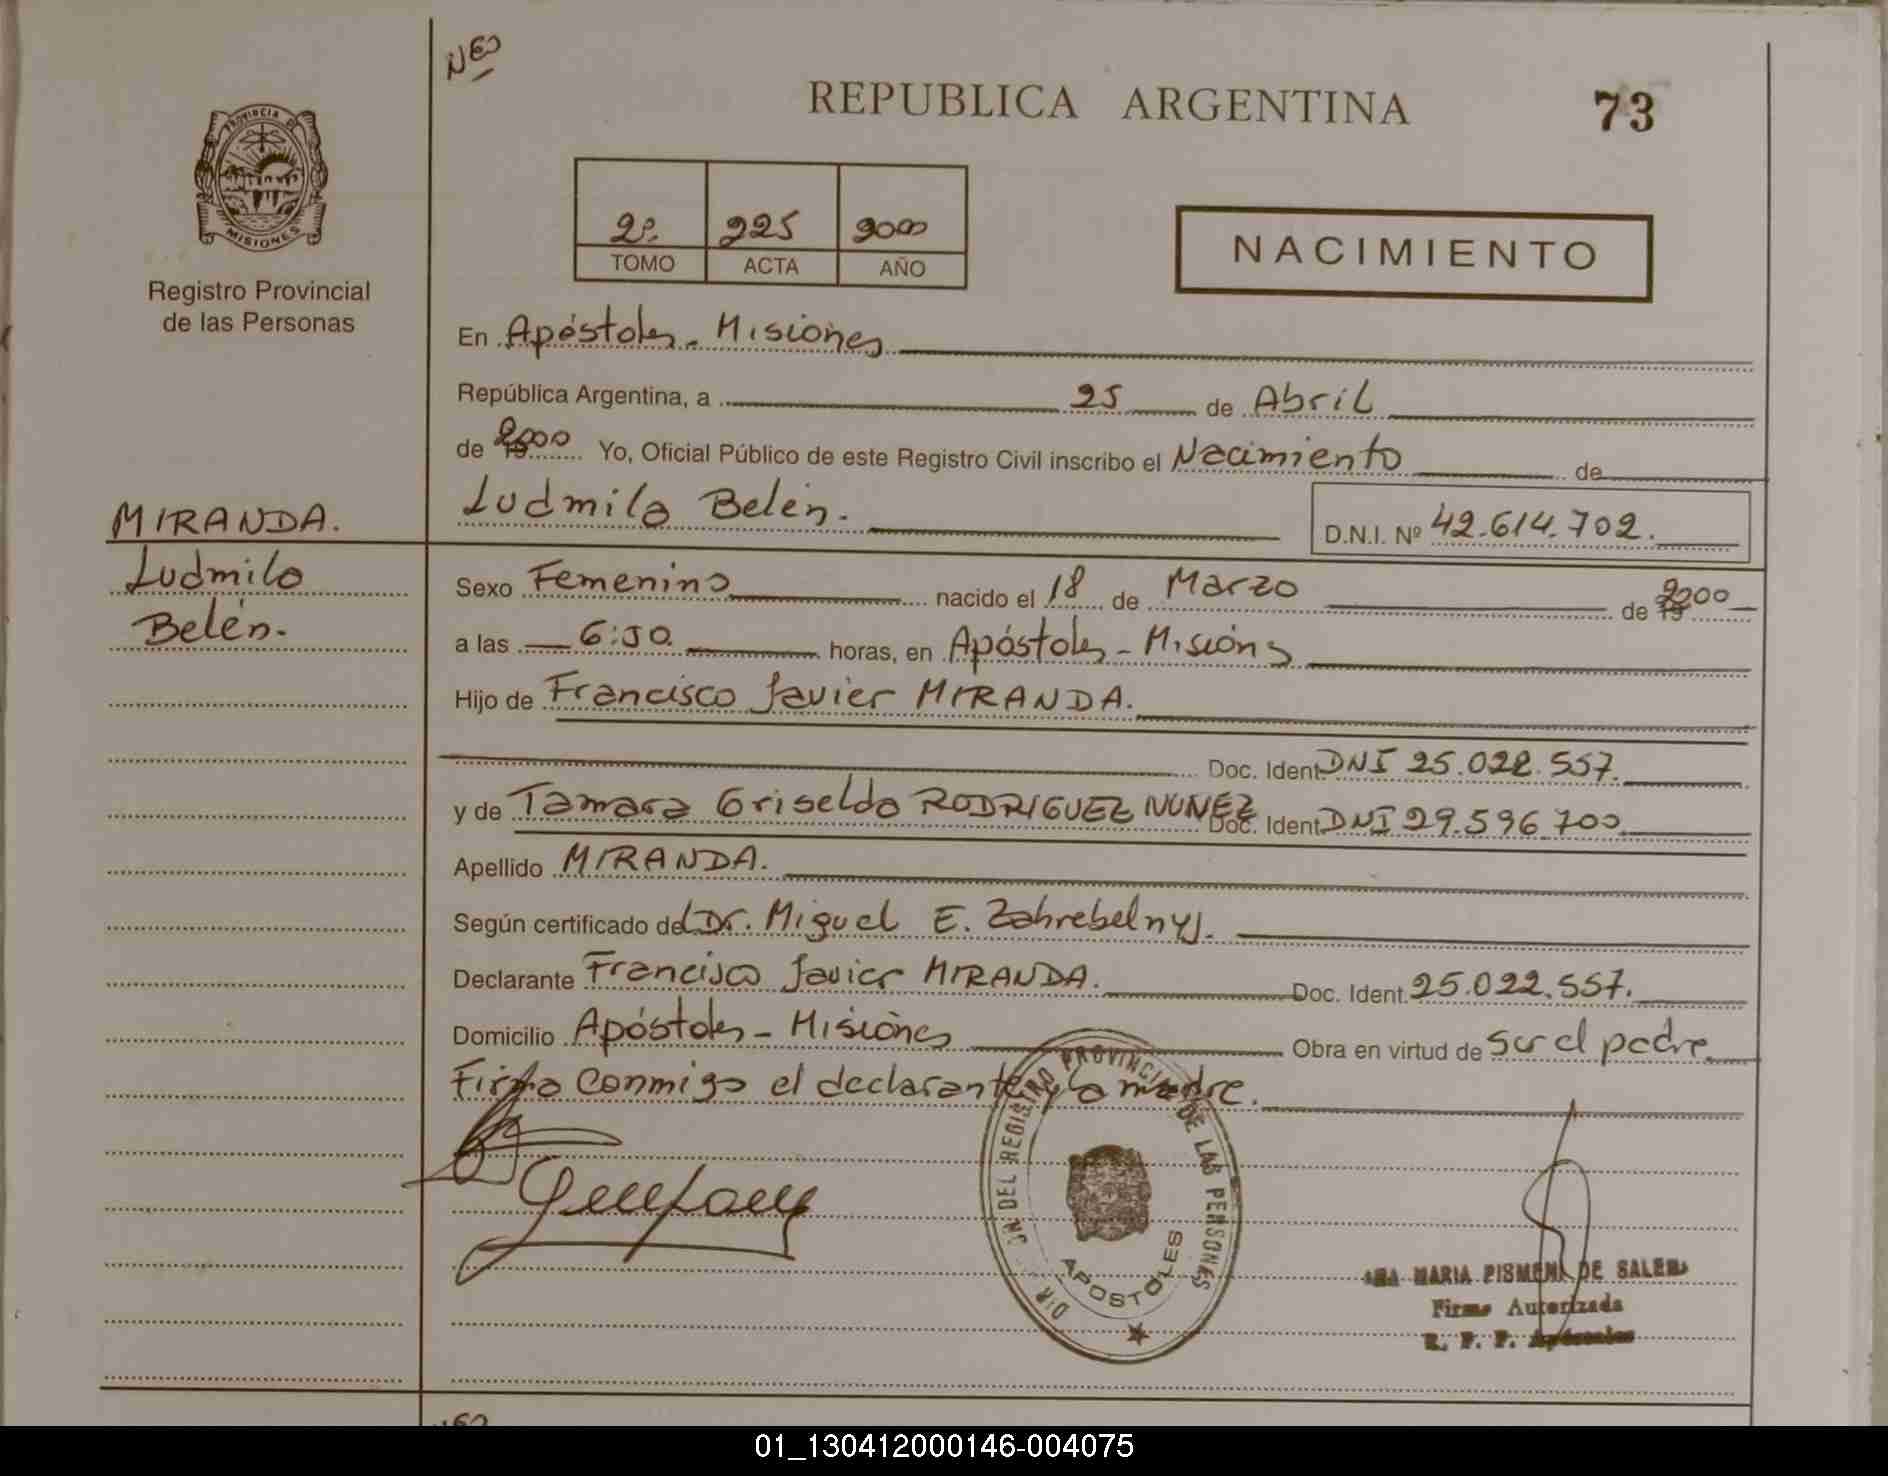 NEO
REPUBLICA ARGENTINA
73
PROVINCIA DE
MISIONES
Registro Provincial
de las Personas
2º. 225 2000
TOMO ACTA AÑO
NACIMIENTO
En Apóstoles. Misiones
República Argentina, a 25 de Abril
de 2000 Yo, Oficial Público de este Registro Civil inscribo el Nacimiento de
MIRANDA.
Ludmila
Belén.
Ludmila Belén.
D.N.I. Nº 42.614.702.
Sexo Femenino nacido el 18 de Marzo de 2000
a las 6:50 horas, en Apóstoles - Misiones
Hijo de Francisco Javier MIRANDA.
Doc. Ident. DNI 25.022.557.
y de Tamara Griselda RODRIGUEZ NUNEZ Doc. Ident. DNI 29.596.700
Apellido MIRANDA.
Según certificado del Dr. Miguel E. Zahrebelnyj.
Declarante Francisco Javier MIRANDA. Doc. Ident. 25.022.557.
Domicilio Apóstoles - Misiones Obra en virtud de ser el padre.
Firma conmigo el declarante y la madre.
DEL REGISTRO PROVINCIAL DE LAS PERSONAS
APOSTOLES
MARIA PISMENI DE SALEM
Firma Autorizada
R. P. P. Apóstoles
01_130412000146-004075